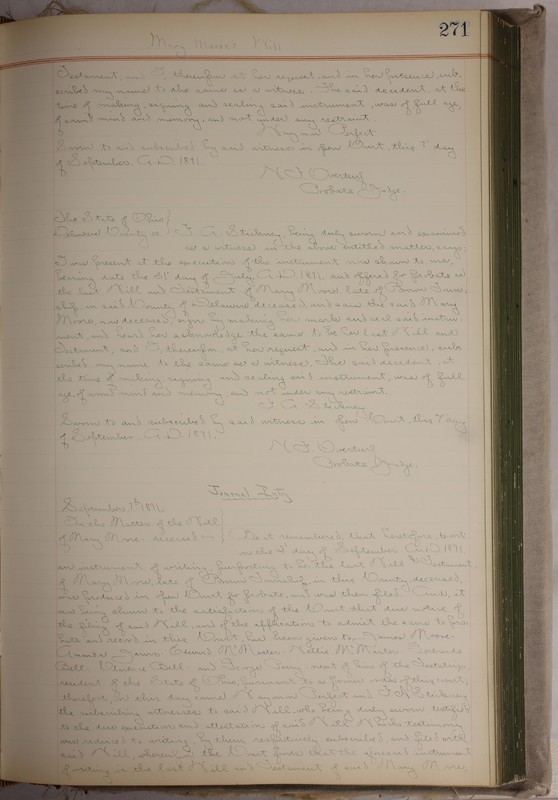 271
Mary Moore's Will
Testament, and I, thereupon at her request, and in her presence, sub-
scribed my name to the same as a witness. The said decedent, at the
time of making, signing and sealing said instrument, was of full age,
of sound mind and memory, and not under any restraint.
Perfect
Sworn to and subscribed by said witness in open Court, this 1" day
of September. A.D. 1891.
Probate Judge.
The State of Ohio
Delaware County ss F. A. Stickney, being duly sworn and examined
as a witness in the above entitled matter, says:
I was present at the execution of the instrument now shown to me,
bearing date the 31" day of July, A.D. 1891, and offered for Probate as
the last Will and Testament of Mary Moore, late of Town-
ship, in said County of Delaware deceased, and saw the said Mary
Moore, now deceased, sign by making her mark and seal said instru-
ment, and heard her acknowledge the same to be her last Will and
Testament, and I, thereupon, at her request, and in her presence, sub-
scribed my name to the same as a witness. The said decedent, at
the time of making, signing and sealing said instrument, was of full
age, of sound mind and memory, and not under any restraint.
F. A. Stickney
Sworn to and subscribed by said witness in open Court, this day
of September. A.D. 1891.
Probate Judge.
Journal Entry
September 1st 1891.
In the Matter of the Will
of Mary Moore deceased Be it remembered, that heretofore, to wit
on the day of September A.D. 1891
an instrument of writing, purporting to be the last Will & Testament
of Mary Moore, late of Township, in this County, deceased,
was produced in open Court for probate, and was then filed. And, it
now being shown to the satisfaction of the Court that due notice of
the filing of said Will, and of the application to admit the same to pro-
bate and record in this Court, has been given to James Moore
Nellie McMaster Gertrude
Bell. Bell and George next of kin of the Testatrix,
resident of the State of Ohio, pursuant to a former order of this court,
therefore, on this day came Perfect and F. A. Stickney
the subscribing witnesses to said Will, who being duly sworn testified
to the due execution and attestation of said Will. Which testimony
was reduced to writing, by them respectively subscribed, and filed with
said Will, wherein the Court finds that the aforesaid instrument
of writing is the last Will and Testament of said Mary Moore,